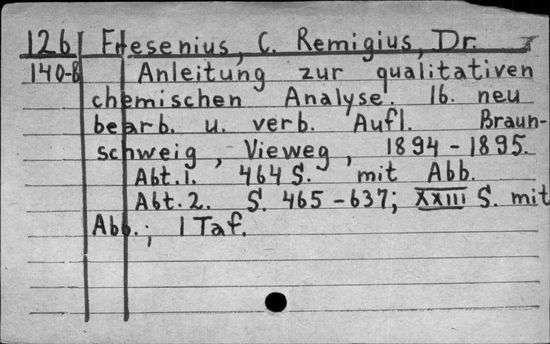 126 Fresenius, C. Remigius, Dr.
140-B Anleitung zur qualitativen
chemischen Analyse. 16. neu
bearb. u. verb. Aufl. Braun-
schweig, Vieweg, 1894-1895.
Abt. 1. 464 S. mit Abb.
Abt. 2. S. 465-637; XXIII S. mit
Abb.; 1 Taf.